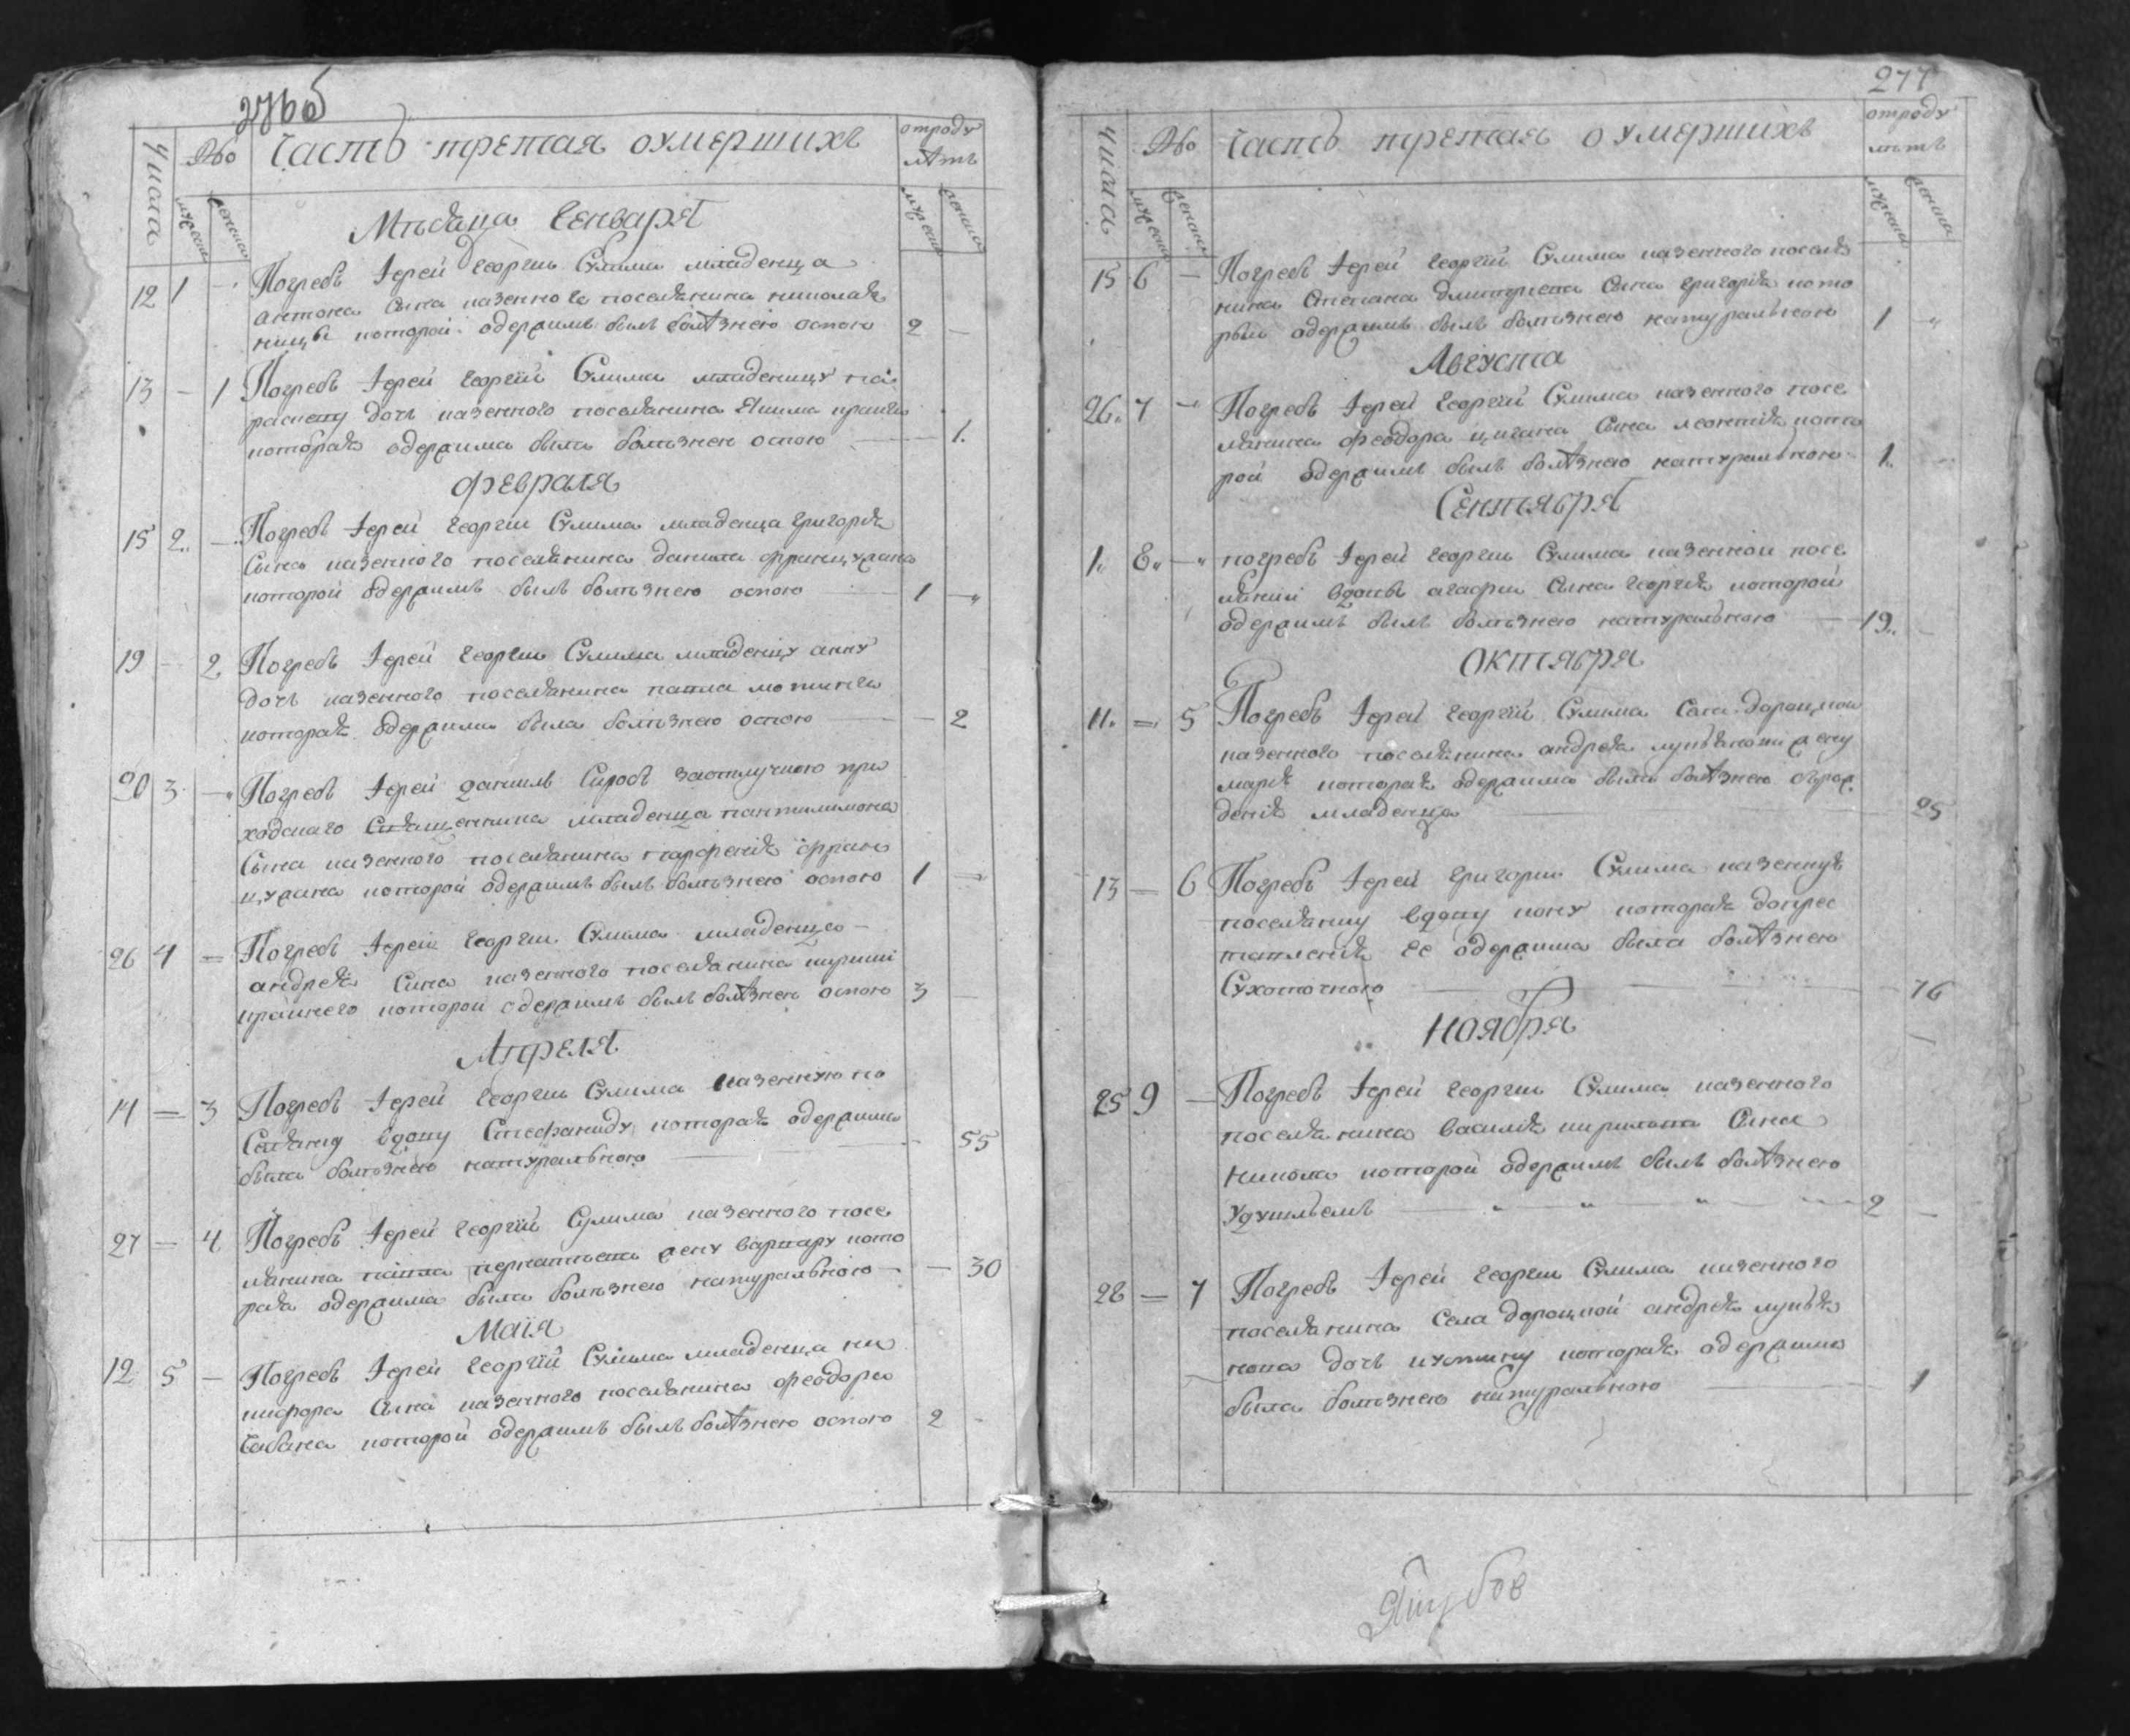 276 об
Числа
Имо
Часть третая оумершихъ
отроду лѣтъ
мужеска
женска
мужеска
женска
Мѣсяца Генваря
12 1 — Погребъ Іерей Георгии Сулима младенца
антона сына казенного поселянина николая
которой одержимъ былъ болѣзнею оспою 2 —
13 — 1 Погребъ Іерей Георгій Сулима младеницу па
раскеву дочь казенного поселянина Якима
котораѧ одержима была болѣзнею оспою — 1.
Февраля
15 2.. — Погребъ Іерей Георгии Сулима младенца григорія
сына казенного поселянина данила францужана
которой одержимъ былъ болѣзнею оспою 1 —
19 — 2 Погребъ Іерей Георгии Сулима младеницу анну
дочь казенного поселянина павла
котораѧ одержима была болѣзнею оспою — 2
20 3 — Погребъ Іерей даниилъ Сирбъ заотлучкою при
ходскаго Священника младенца пантилимона
Сына казенного поселянина парфенія фран
цужана которой одержимъ былъ болѣзнею оспою 1 —
26 4 = Погребъ Іерей Георгии Сулима младенца —
андрея Сина казенного поселянина
крайнего которой одержимъ былъ болѣзнею оспою 3 —
Апреля
14 = 3 Погребъ Іерей Георгии Сулима казенную по
селянку вдову Стефаниду котораѧ одержима
была болѣзнею натуральною — 55
27 — 4 Погребъ Іерей Георгій Сулима казенного посе
лянина павла жену варвару кото
раѧ одержима была болѣзнею натуральною — — 30
Маія
12 5 — Погребъ Іерей Георгій Сулима младенца ни
кифора сына казенного поселянина феодора
Чабана которой одержимъ былъ болѣзнею оспою 2 -
277
Числа
Имо
Часть третая оумершихъ
отроду лѣтъ
мужеска
женска
мужеска
женска
15 6 — Погребъ Іерей Георгій Сулима казенного поселя
нина Степана сына григорія кото
рый одержимъ былъ болѣзнею натуральною 1 —
Августа
26.. 7 — Погребъ Іерей Георгій Сулима казенного посе
лянина феодора цигана сына леонтія кото
рой одержимъ былъ болѣзнею натуральною 1..
Сентября
1.. 8.. — погребъ Іерей Георгии Сулима казенной посе
лянки вдовы агафии сына георгія которой
одержимъ былъ болѣзнею натуральною — 19..
Октября
11. = 5 Погребъ Іерей Георгій Сулима Села дороцкой
казенного поселянина андрея лупѧкова жену
марію котораѧ одержима была болѣзнею отрож
денія младенца 25
13 — 6 Погребъ Іерей Григории Сулима казенную
поселянку вдову котораѧ допрес
тавленія ее одержима была болѣзнею
Сухоточною 76
Ноября
25 9 — Погребъ Іерей Георгии Сулима казенного
поселянина василія кирилова Сина
Николая которой одержимъ былъ болѣзнею
Удушлѣемъ 2 —
28 = 7 Погребъ Іерей Георгии Сулима казенного
поселянина Села дороцкой андрея лупѧ
кова дочь котораѧ одержима
была болѣзнею натуральною 1